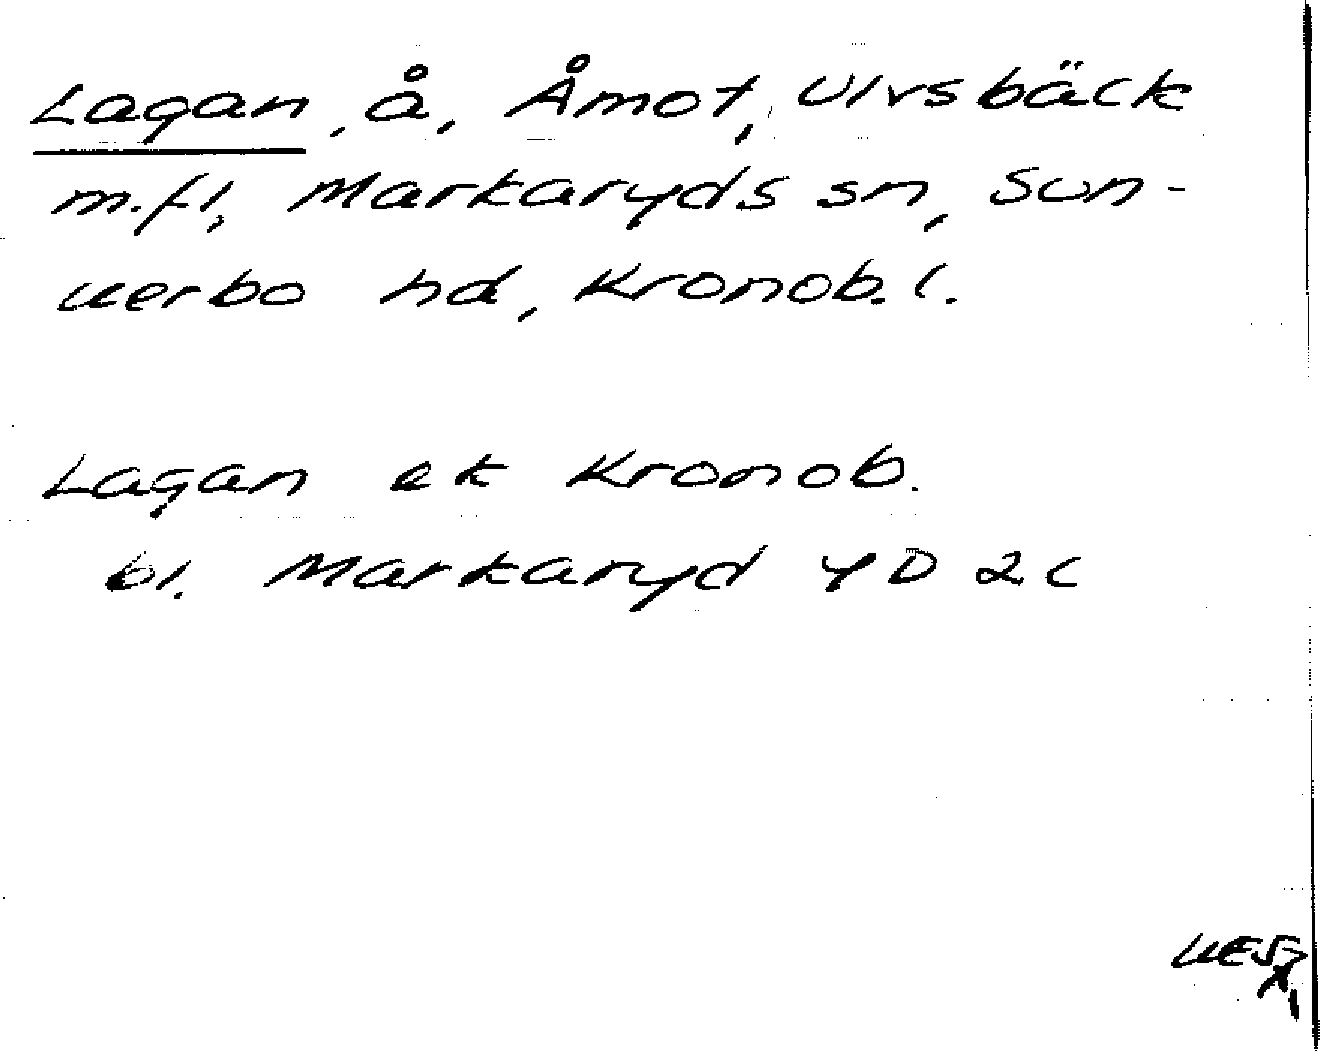 Lagan, å, Åmot, Ulvsbäck
m.fl, Markaryds sn, Sun-
nerbo hd, Kronob. l.
Lagan ek Kronob.
bl. Markaryd 4D 2c